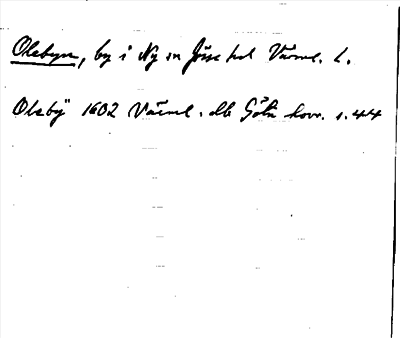 Olebyn, by i Ny sn Jösse hd Värml. L.
Olebÿ 1602 Värml. dlb Göta hovr. s. 44